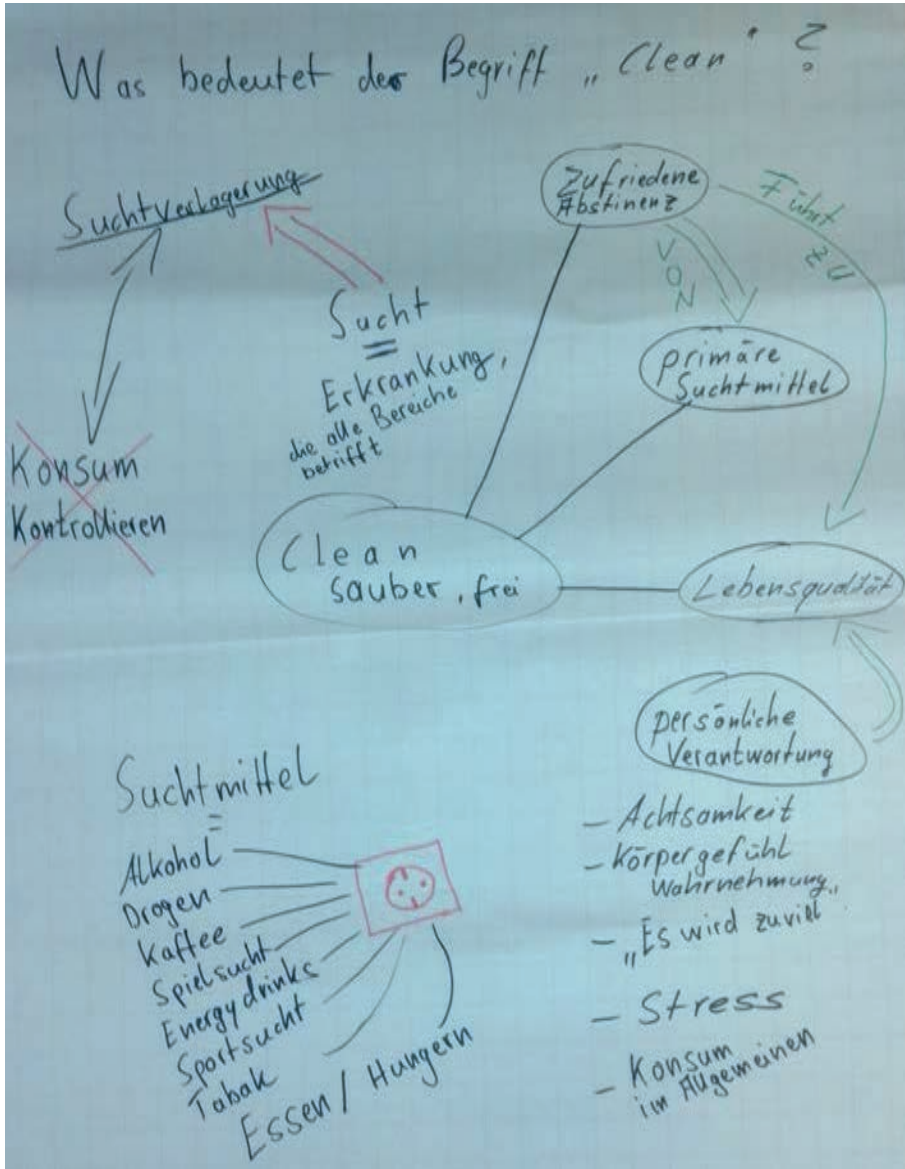 Was bedeutet der Begriff „Clean" ?
Suchtverlagerung
Zufriedene
Abstinenz
Führt
zu
VON
Sucht
=
Erkrankung,
die alle Bereiche
betrifft
primäre
Suchtmittel
Konsum
Kontrollieren
Clean
sauber, frei
Lebensqualität
persönliche
Verantwortung
- Achtsamkeit
- Körpergefühl
Wahrnehmung"
- „Es wird zuviel
- Stress
- Konsum
im Allgemeinen
Suchtmittel
=
Alkohol
Drogen
Kaffee
Spielsucht
Energydrinks
Sportsucht
Tabak
Essen / Hungern